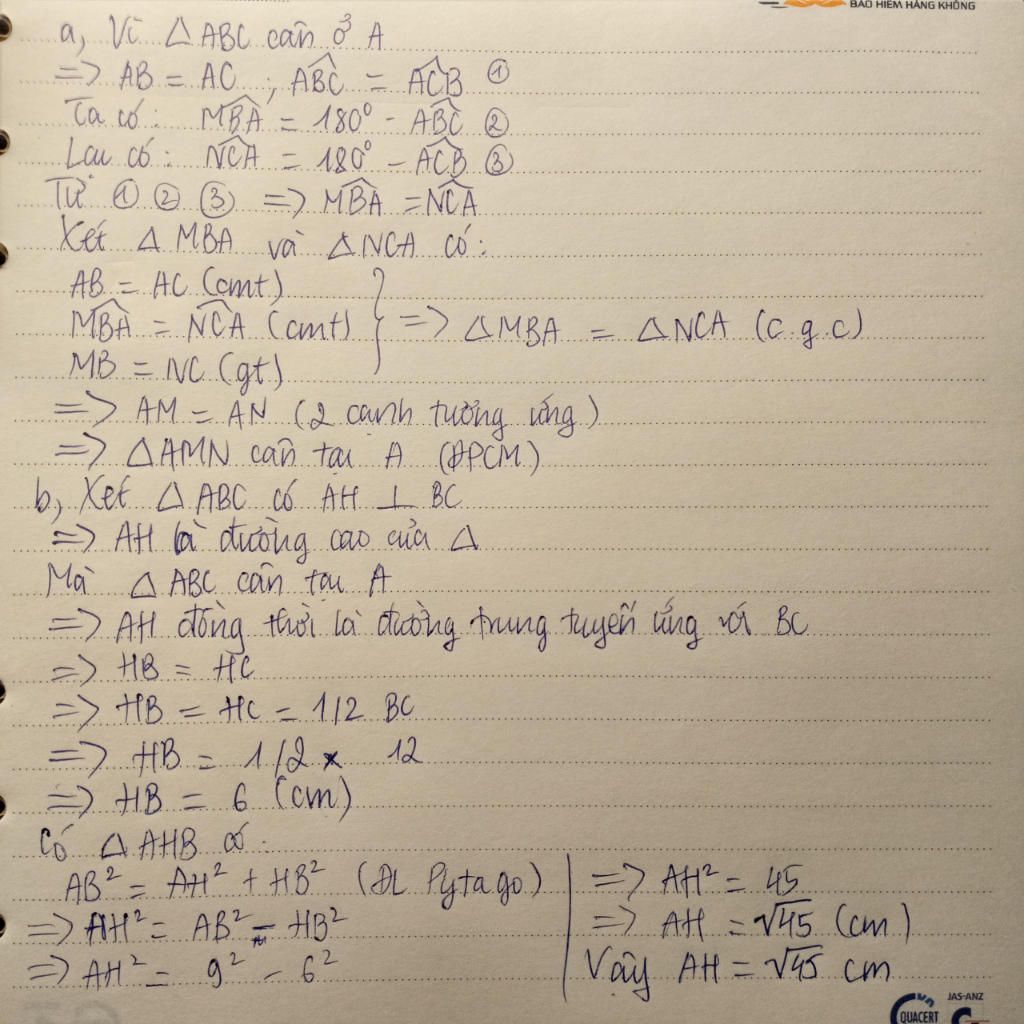 BẢO HIỂM HÀNG KHÔNG
a, Vì △ ABC cân ở A
=> AB = AC ; ABC^ = ACB^ ①
Ta có: MBA^ = 180° - ABC^ ②
Lại có: NCA^ = 180° - ACB^ ③
Từ ① ② ③ => MBA^ = NCA^
Xét △ MBA và △ NCA có:
AB = AC (cmt)
MBA^ = NCA^ (cmt) } => △MBA = △NCA (c.g.c)
MB = NC (gt)
=> AM = AN (2 cạnh tương ứng)
=> △AMN cân tại A (ĐPCM)
b, Xét △ ABC có AH ⊥ BC
=> AH là đường cao của △
Mà △ ABC cân tại A
=> AH đồng thời là đường trung tuyến ứng với BC
=> HB = HC
=> HB = HC = 1/2 BC
=> HB = 1/2 x 12
=> HB = 6 (cm)
Có △ AHB có:
AB² = AH² + HB² (ĐL Pytago)
=> AH² = AB² - HB²
=> AH² = 9² - 6²
=> AH² = 45
=> AH = √45 (cm)
Vậy AH = √45 cm
QUACERT
JAS-ANZ